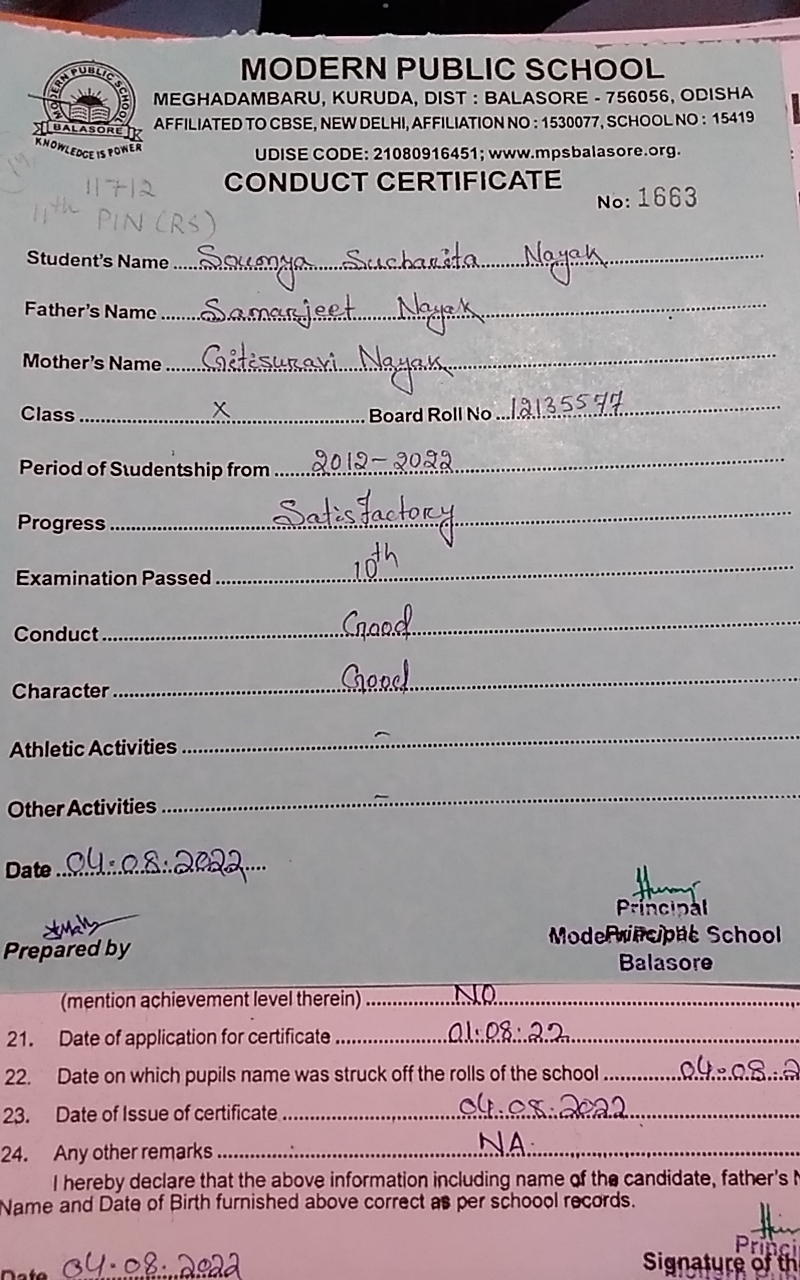 MODERN PUBLIC SCHOOL
MEGHADAMBARU, KURUDA, DIST : BALASORE - 756056, ODISHA
AFFILIATED TO CBSE, NEW DELHI, AFFILIATION NO : 1530077, SCHOOL NO : 15419
UDISE CODE: 21080916451; www.mpsbalasore.org.
MODERN PUBLIC SCHOOL
BALASORE
KNOWLEDGE IS POWER
CONDUCT CERTIFICATE
No: 1663
11712
11th PIN (RS)
Student's Name Soumya Sucharita Nayak
Father's Name Samarjeet Nayak
Mother's Name Gitisuravi Nayak
Class X Board Roll No 12135577
Period of Studentship from 2012-2022
Progress Satisfactory
Examination Passed 10th
Conduct Good
Character Good
Athletic Activities –
Other Activities –
Date 04.08.2022
Prepared by
Principal
Modern Public School
Principal
Balasore
(mention achievement level therein) NO
21. Date of application for certificate 01.08.22
22. Date on which pupils name was struck off the rolls of the school 04.08.2
23. Date of Issue of certificate 04.08.2022
24. Any other remarks NA.
I hereby declare that the above information including name of the candidate, father's N
Name and Date of Birth furnished above correct as per schoool records.
Date 04.08.2022
Princi
Signature of th